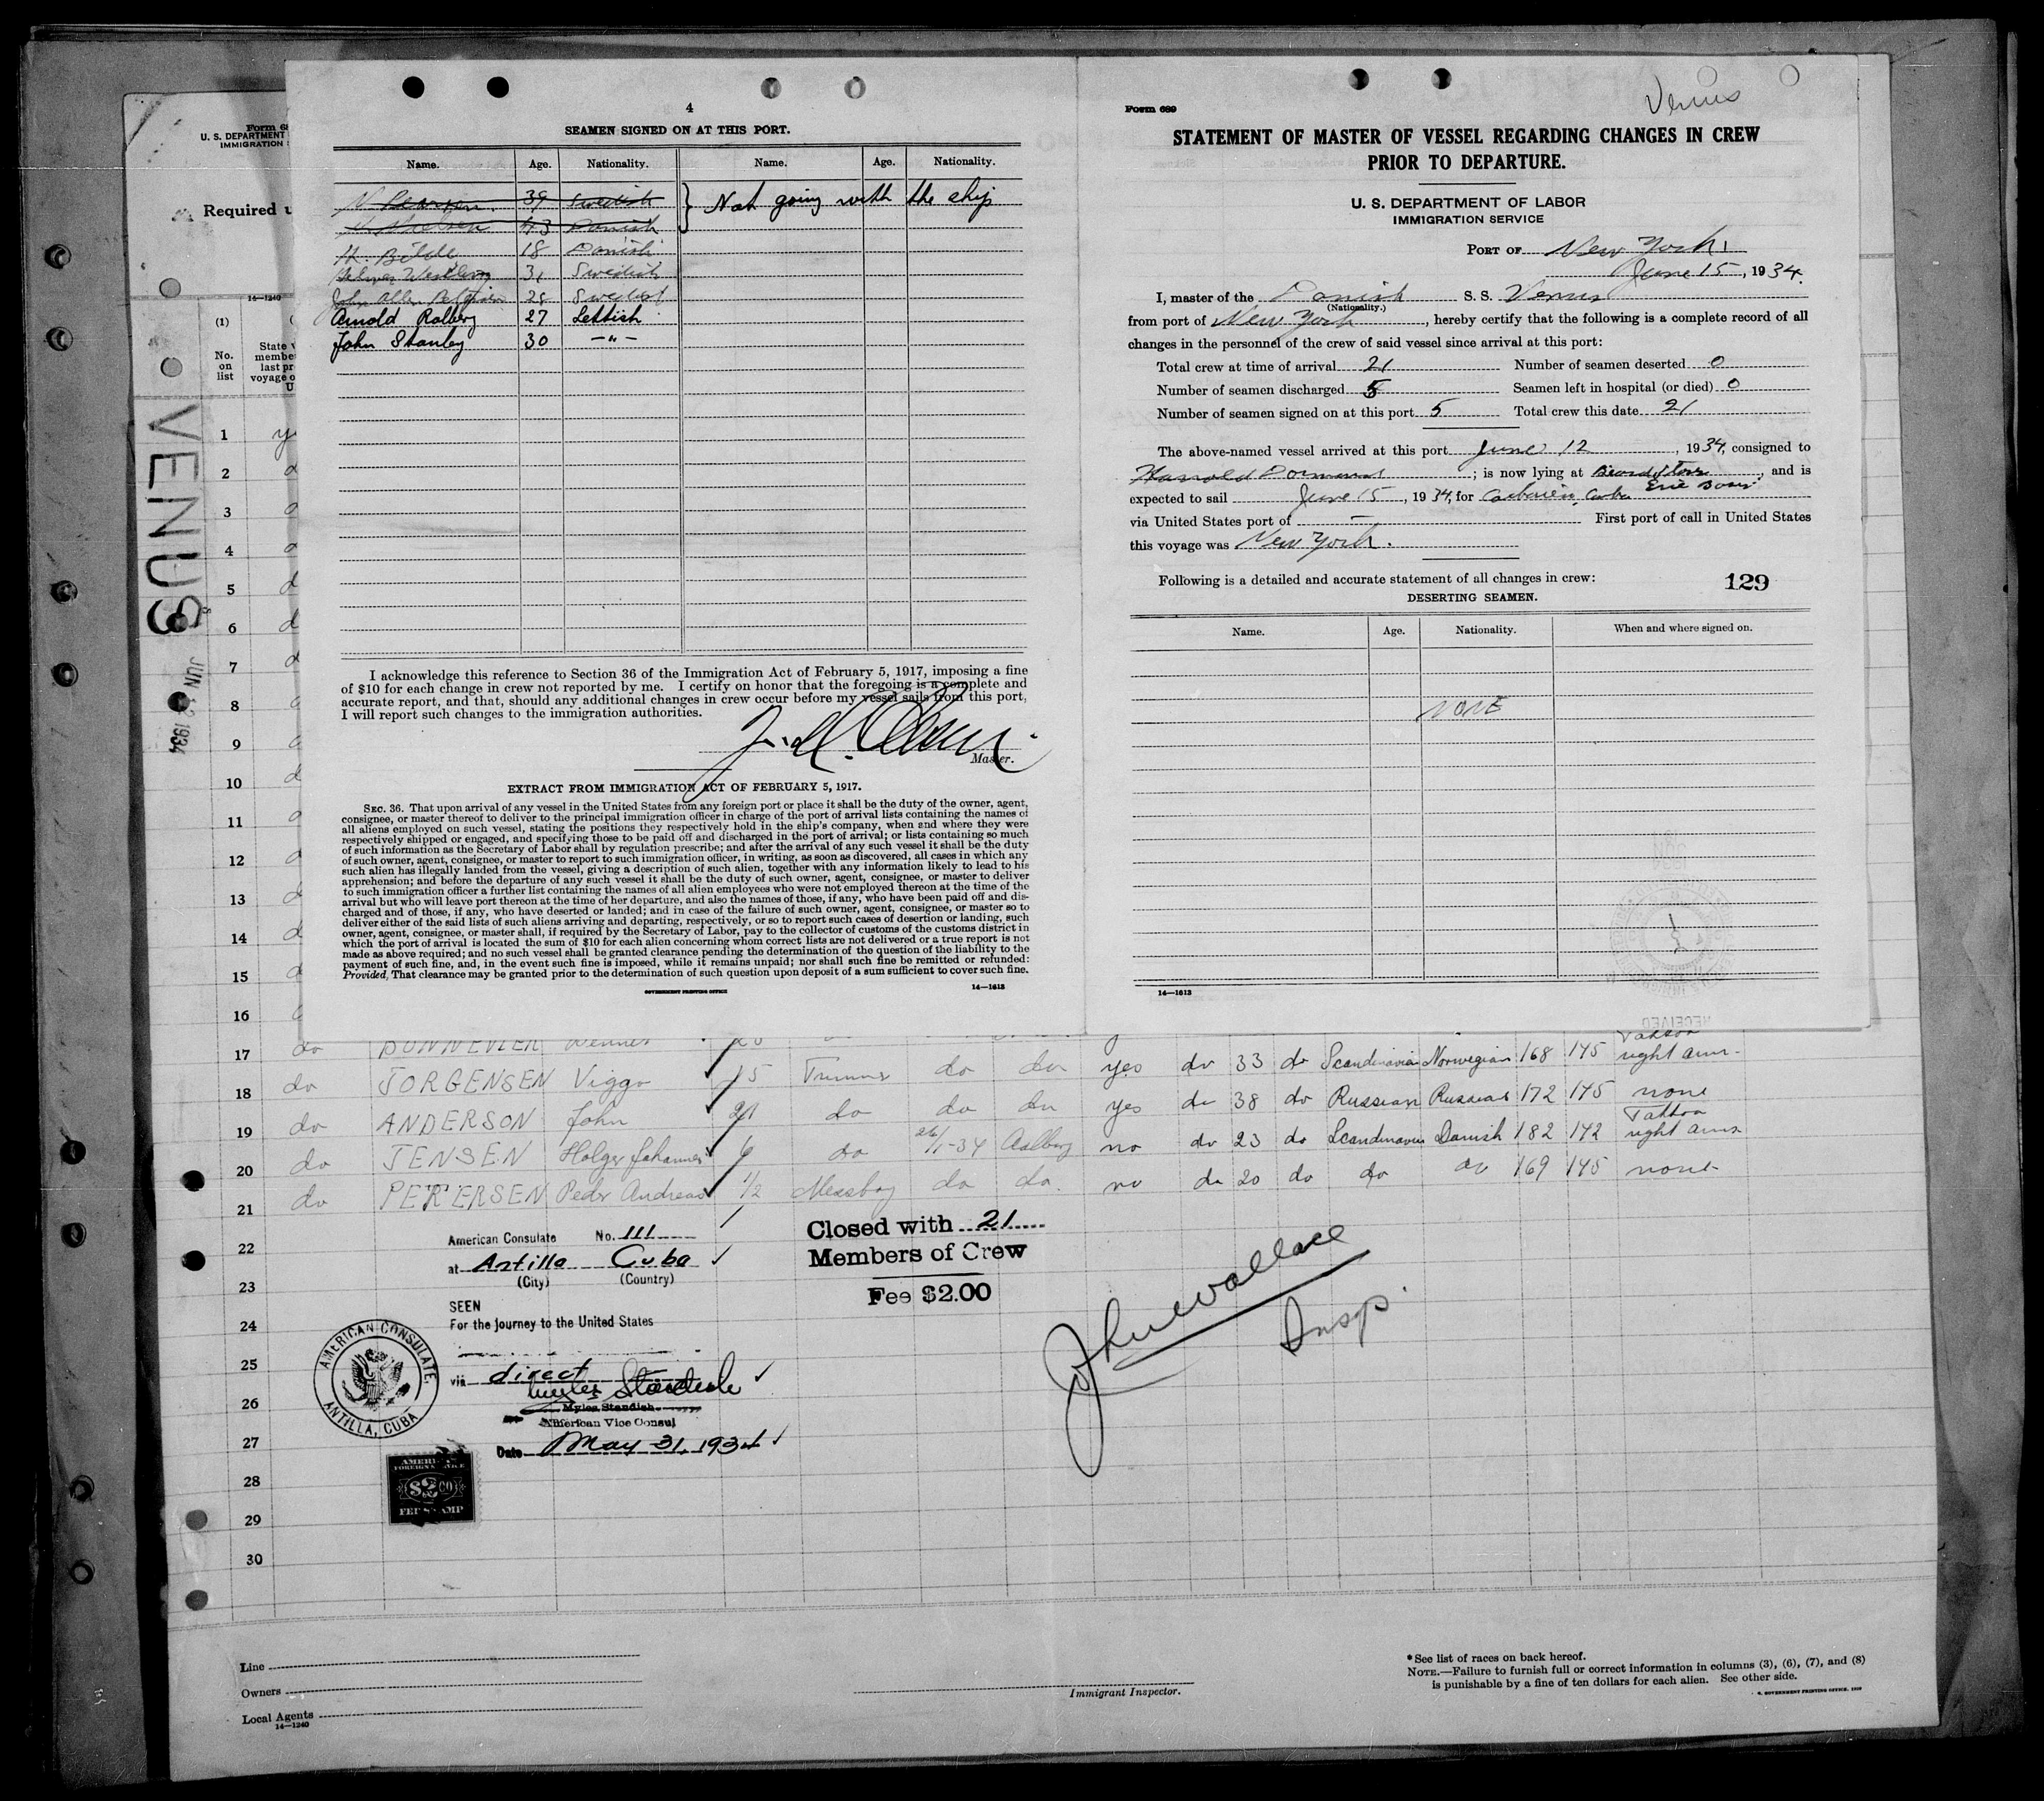 4
SEAMEN SIGNED ON AT THIS PORT.
Name. Age. Nationality. Name. Age. Nationality.
39 Swedish Not going with the ship
43 Danish
H. Bilde 18 Danish
31 Swedish
John Allan 28 Swedish
Arnold Rolberg 27 Lettish
John Stanley 30 —〃—
I acknowledge this reference to Section 36 of the Immigration Act of February 5, 1917, imposing a fine
of $10 for each change in crew not reported by me. I certify on honor that the foregoing is a complete and
accurate report, and that, should any additional changes in crew occur before my vessel sails from this port,
I will report such changes to the immigration authorities.
Master.
EXTRACT FROM IMMIGRATION ACT OF FEBRUARY 5, 1917.
SEC. 36. That upon arrival of any vessel in the United States from any foreign port or place it shall be the duty of the owner, agent,
consignee, or master thereof to deliver to the principal immigration officer in charge of the port of arrival lists containing the names of
all aliens employed on such vessel, stating the positions they respectively hold in the ship's company, when and where they were
respectively shipped or engaged, and specifying those to be paid off and discharged in the port of arrival; or lists containing so much
of such information as the Secretary of Labor shall by regulation prescribe; and after the arrival of any such vessel it shall be the duty
of such owner, agent, consignee, or master to report to such immigration officer, in writing, as soon as discovered, all cases in which any
such alien has illegally landed from the vessel, giving a description of such alien, together with any information likely to lead to his
apprehension; and before the departure of any such vessel it shall be the duty of such owner, agent, consignee, or master to deliver
to such immigration officer a further list containing the names of all alien employees who were not employed thereon at the time of the
arrival but who will leave port thereon at the time of her departure, and also the names of those, if any, who have been paid off and dis-
charged and of those, if any, who have deserted or landed; and in case of the failure of such owner, agent, consignee, or master so to
deliver either of the said lists of such aliens arriving and departing, respectively, or so to report such cases of desertion or landing, such
owner, agent, consignee, or master shall, if required by the Secretary of Labor, pay to the collector of customs of the customs district in
which the port of arrival is located the sum of $10 for each alien concerning whom correct lists are not delivered or a true report is not
made as above required; and no such vessel shall be granted clearance pending the determination of the question of the liability to the
payment of such fine, and, in the event such fine is imposed, while it remains unpaid; nor shall such fine be remitted or refunded:
Provided, That clearance may be granted prior to the determination of such question upon deposit of a sum sufficient to cover such fine.
GOVERNMENT PRINTING OFFICE 14—1613
Venus
Form 689
STATEMENT OF MASTER OF VESSEL REGARDING CHANGES IN CREW
PRIOR TO DEPARTURE.
U. S. DEPARTMENT OF LABOR
IMMIGRATION SERVICE
PORT OF New York,
June 15, 1934.
I, master of the Danish S. S. Venus
(Nationality.)
from port of New York, hereby certify that the following is a complete record of all
changes in the personnel of the crew of said vessel since arrival at this port:
Total crew at time of arrival 21 Number of seamen deserted 0
Number of seamen discharged 5 Seamen left in hospital (or died) 0
Number of seamen signed on at this port 5 Total crew this date 21
The above-named vessel arrived at this port June 12, 1934, consigned to
; is now lying at , and is
Erie Basin
expected to sail June 15, 1934, for Caibarien, Cuba
via United States port of — First port of call in United States
this voyage was New York.
Following is a detailed and accurate statement of all changes in crew: 129
DESERTING SEAMEN.
Name. Age. Nationality. When and where signed on.
NONE
14—1613
RECEIVED
U. S. DEPARTMENT
IMMIGRATION
Required
14—1240
(1)
No. on list
State
membe
last pr
voyage o
U
VENUS
JUN 12 1934
1
2
3
4
5
6
7
8
9
10
11
12
13
14
15
16
17 do BONNEVIER Werner
yes do 33 do Scandinavian Norwegian 168 145 Tattoo right arm
18 do JORGENSEN Viggo 15 Trimmer do do
yes do 38 do Russian Russian 172 175 none
19 do ANDERSON John 21 do do do
no do 23 do Scandinavian Danish 182 142 Tattoo right arm
20 do JENSEN Holger Johannes 6 do 26/1-34 Aalborg
no do 20 do do do 169 145 none
21 do PETERSEN Peder Andreas 1/2 Messboy do do.
22
23
24
25
26
27
28
29
30
American Consulate No. 111
at Antilla Cuba
(City) (Country)
SEEN
For the journey to the United States
via direct
Myles Standish
Myles Standish
American Vice Consul
Date May 31, 1934
AMERICAN CONSULATE.
ANTILLA, CUBA
$2 00
Closed with 21
Members of Crew
Fee $2.00
Wallace
Insp.
Line
Owners
Local Agents
14—1240
Immigrant Inspector.
*See list of races on back hereof.
NOTE.—Failure to furnish full or correct information in columns (3), (6), (7), and (8)
is punishable by a fine of ten dollars for each alien. See other side.